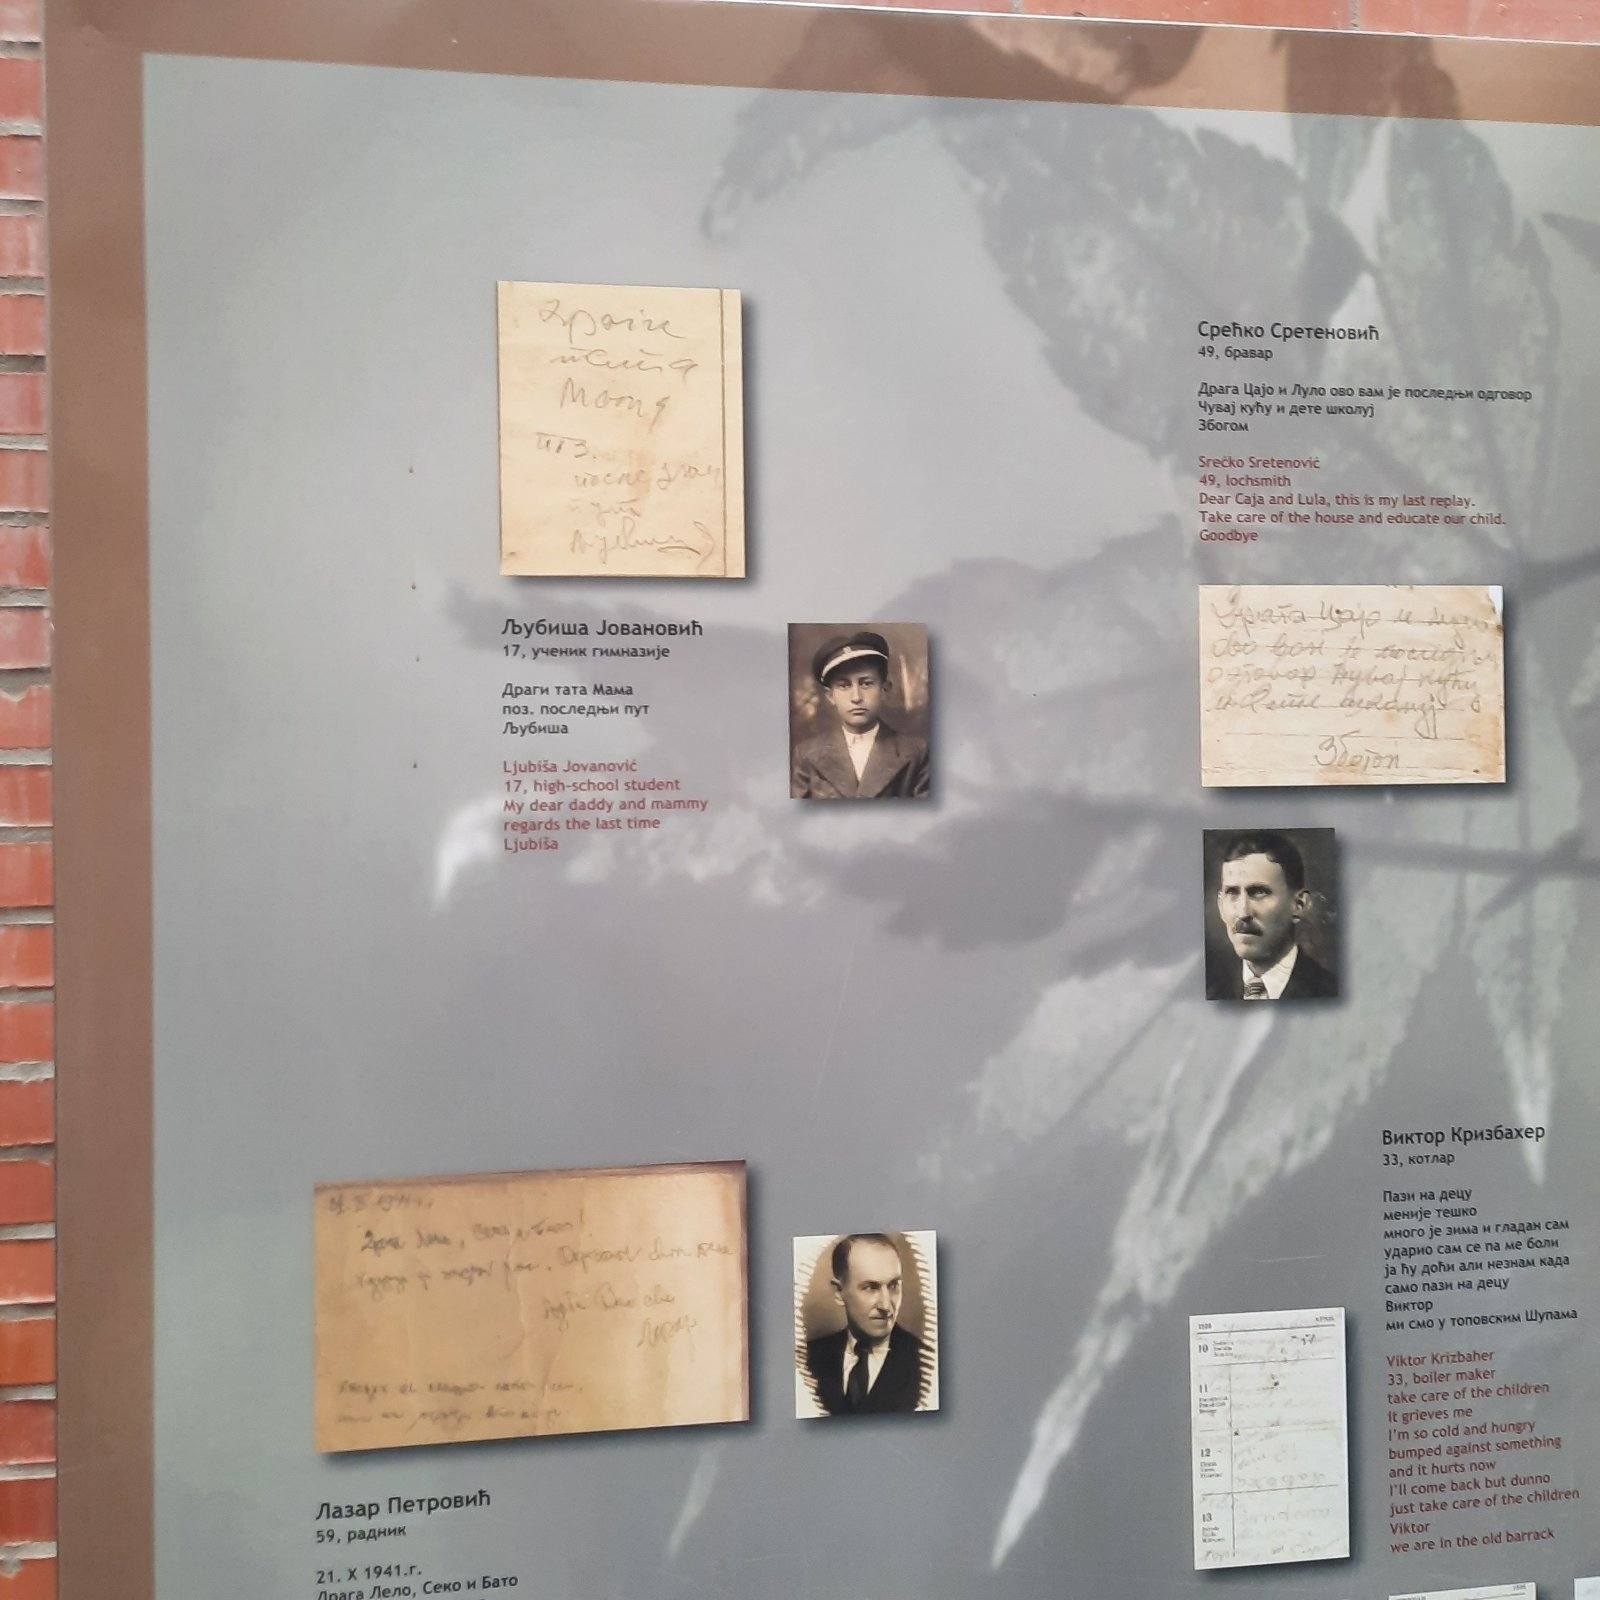 Драги
тата
Мама
поз.
последњи
пут
Љубиша
Љубиша Јовановић
17, ученик гимназије
Драги тата Мама
поз. последњи пут
Љубиша
Ljubiša Jovanović
17, high-school student
My dear daddy and mammy
regards the last time
Ljubiša
Срећко Сретеновић
49, бравар
Драга Цајо и Луло ово вам је последњи одговор
Чувај кућу и дете школуј
Збогом
Srećko Sretenović
49, lochsmith
Dear Caja and Lula, this is my last replay.
Take care of the house and educate our child.
Goodbye
Драга Цајо и Луло
ово вам је последњи
одговор Чувај кућу
и дете школуј
Збогом
Лазар Петровић
59, радник
21. X 1941.г.
Драга Лело, Секо и Бато
Виктор Кризбахер
33, котлар
Пази на децу
меније тешко
много је зима и гладан сам
ударио сам се па ме боли
ја ћу доћи али незнам када
само пази на децу
Виктор
ми смо у топовским Шупама
10
11
12
13
Viktor Krizbaher
33, boiler maker
take care of the children
it grieves me
I'm so cold and hungry
bumped against something
and it hurts now
I'll come back but dunno
just take care of the children
Viktor
we are in the old barrack